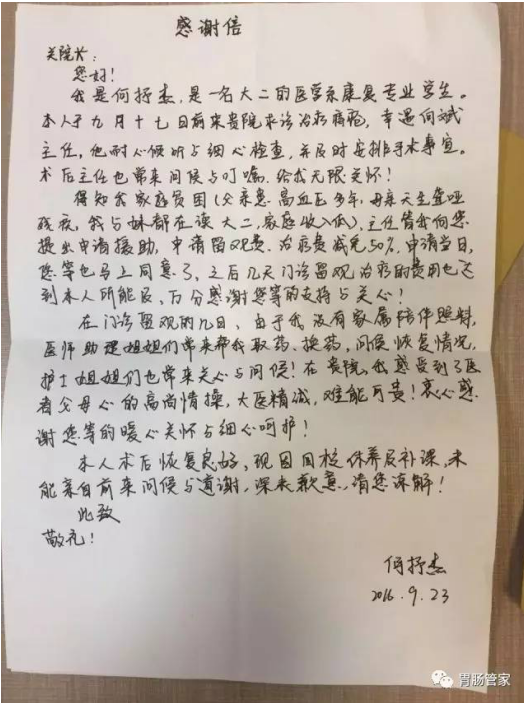 感谢信
关院长：
您好！
我是何抒杰，是一名大二的医学系康复专业学生。
本人于九月十七日前来贵院来诊治疗痔疮，幸遇向斌
主任，他耐心倾听与细心检查，并及时安排手术事宜。
术后主任也常来问候与叮嘱，给我无限关怀！
得知我家庭贫困（父亲患高血压多年，母亲天生聋哑
残疾，我与妹都在读大二，家庭收入低），主任偕我向您
提出申请援助，申请留观费、治疗费减免50%，申请当日，
您等也马上同意了，之后几天门诊留观治疗的费用也达
到本人所能及，万分感谢您等的支持与关心！
在门诊留观的几日，由于我没有家属陪伴照料，
医师助理姐姐们常来帮我取药、换药，问候恢复情况，
护士姐姐们也常来关心与问候！在贵院，我感受到了医
者父母心的高尚情操，大医精诚，难能可贵！衷心感
谢您等的暖心关怀与细心呵护！
本人术后恢复良好，现因回校休养及补课，未
能亲自前来问候与道谢，深表歉意，请您谅解！
此致
敬礼！
何抒杰
2016.9.23
胃肠管家